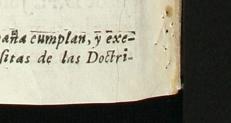 aña cumplan, y exe-
sitas de las Doctri-